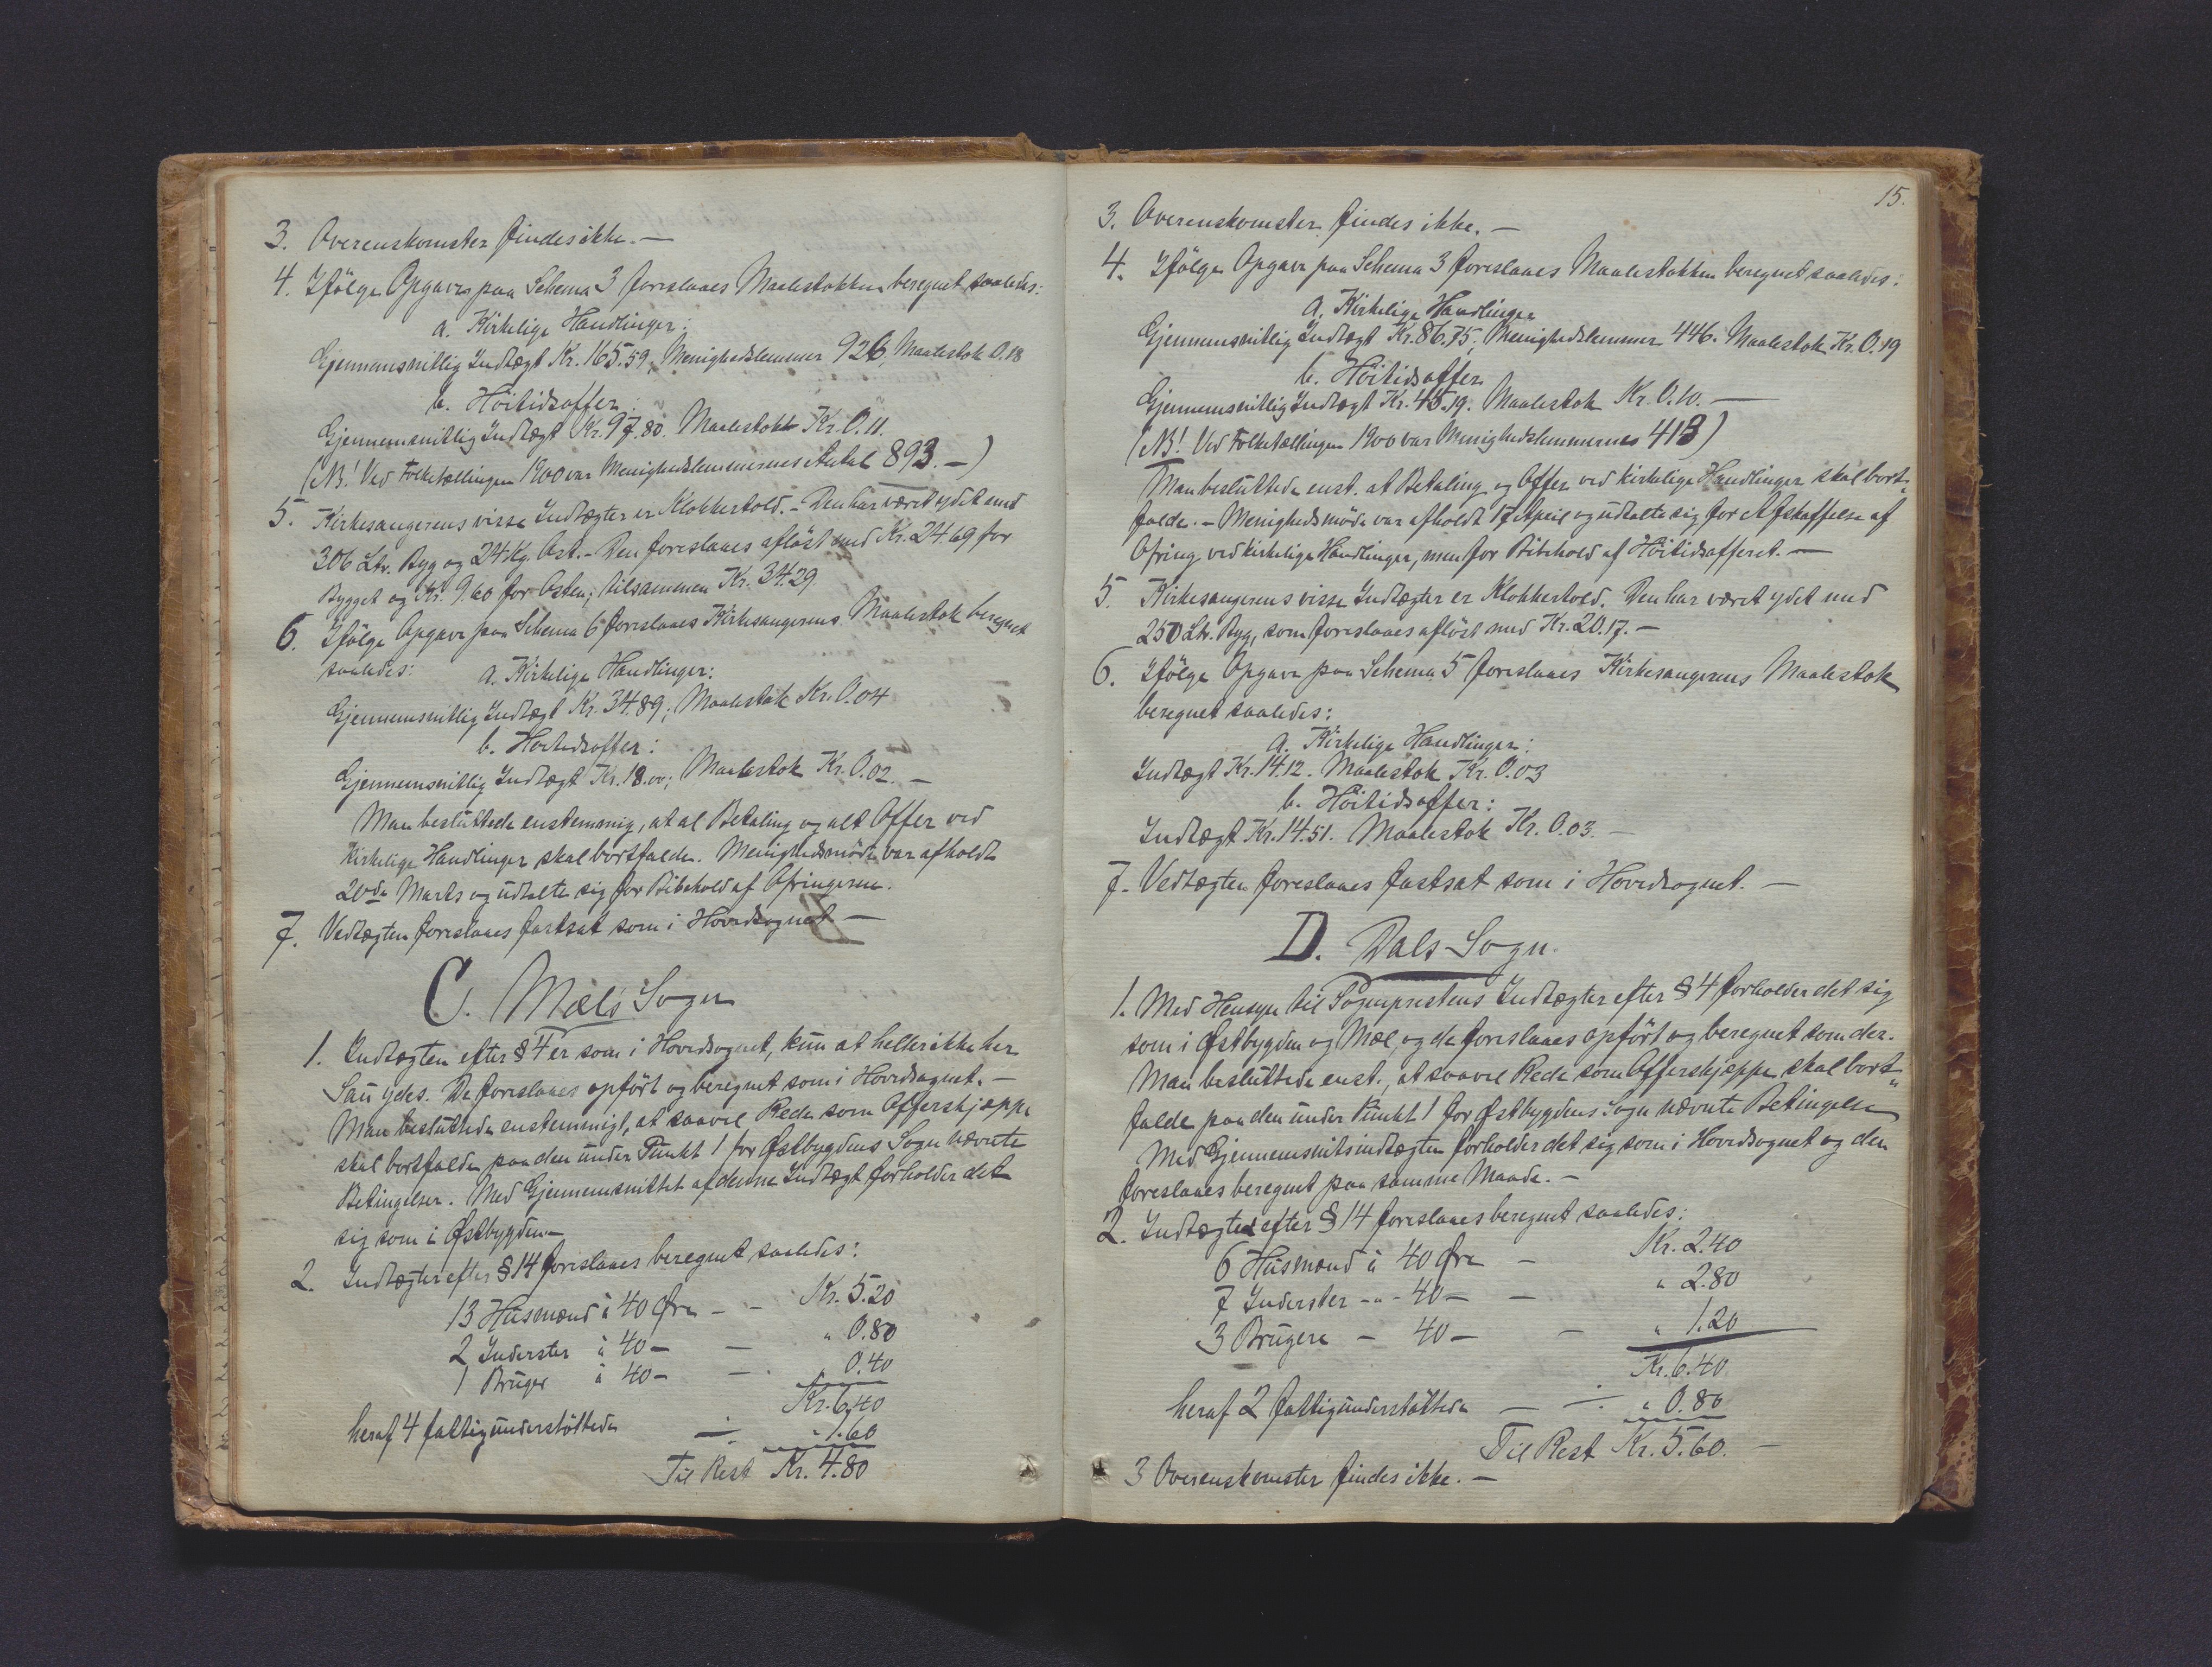 3. Overenskomster findes ikke. —
4. Ifölge Opgaver paa Schema 3 foreslaaes Maalestokken beregnet saaledes:
a. Kirkelige Handlinger:
Gjennemsnitlig Indtægt Kr. 165.59, Menighedslemmer 926, Maalestok 0.18
b. Höitidsoffer:
Gjennemsnitlig Indtægt Kr. 97.80. Maalestokk Kr. 0.11.
(NB! Ved Folketællingen 1900 var Menighedslemmernes Antal 893. —)
5. Kirkesangerens visse Indtægter er Klokkertold. – Den har været ydet med
306 Ltr. Byg og 24 Kg. Ost. – Den foreslaaes aflöst med Kr. 24.69 for
Bygget og Kr. 9.60 for Osten; tilsammen Kr. 34.29
6. Ifölge Opgave paa Schema 6 foreslaaes Kirkesangerens Maalestok beregnet
saaledes: a. Kirkelige Handlinger:
Gjennemsnitlig Indtægt Kr. 34.89; Maalestok Kr. 0.04
b. Hoitidsoffer:
Gjennemsnitlig Indtægt Kr. 18.00; Maalestok Kr. 0.02. —
Man besluttede enstemmig, at al Betaling og alt Offer ved
Kirkelige Handlinger skal bortfalde. Menighedsmöde var afholdt
20de Marts og udtalte sig for Bibehold af Ofringerne.
7. Vedtægten foreslaaes fastsat som i Hovedsognet —
C. Mæls Sogn
1. Indtægten efter § 4 er som i Hovedsognet, kun at heller ikke her
Sau ydes. De foreslaaes opfört og beregnet som i Hovedsognet. –
Man besluttede enstemmigt, at saavel Rede som Offerskjæppe
skal bortfalde paa den under Punkt 1 for Østbygdens Sogn nævnte
Betingelser. Med Gjennemsnittet af denne Indtægt forholder det
sig som i Østbygden –
2. Indtægter efter § 14 foreslaaes beregnet saaledes:
13 Husmænd à 40 Øre – – Kr. 5.20
2 Inderster à 40 – — " 0.80
1 Bruger à 40 – — " 0.40
Kr. 6.40
heraf 4 fattigunderstöttede — ÷ " 1.60
Til Rest Kr. 4.80
15.
3. Overenskomster findes ikke. —
4. Ifölge Opgave paa Schema 3 foreslaaes Maalestokken beregnet saaledes:
a. Kirkelige Handlinger
Gjennemsnitlig Indtægt Kr. 86.75; Menighedslemmer 446. Maalestok Kr. 0.19
b. Höitidsoffer
Gjennemsnitlig Indtægt Kr. 45.19. Maalestok Kr. 0.10. —
(NB! Ved Folketællingen 1900 var Menighedslemmernes 413)
Man besluttede enst. at Betaling og Offer ved kirkelige Handlinger skal bort-
falde. – Menighedsmöde var afholdt 17 April og udtalte sig for Afskaffelse af
Ofring ved kirkelige Handlinger, men for Bibehold af Höitidsofferet. —
5. Kirkesangerens visse Indtægter er Klokkertold. Den har været ydet med
250 Ltr. Byg, som foreslaaes aflöst med Kr. 20.17. –
6. Ifölge Opgave paa Schema 5 foreslaaes Kirkesangerens Maalestok
beregnet saaledes:
a. Kirkelige Handlinger:
Indtægt Kr. 14.12. Maalestok Kr. 0.03
b. Höitidsoffer:
Indtægt Kr. 14.51. Maalestok Kr. 0.03. —
7. Vedtægten foreslaaes fastsat som i Hovedsognet. —
D. Dals Sogn
1. Med Hensyn til Sogneprestens Indtægter efter § 4 forholder det sig
som i Østbygden og Mæl, og de foreslaaes opfört og beregnet som der.
Man besluttede enst., at saavel Rede som Offerskjæppe skal bort-
falde paa den under Punkt 1 for Østbygdens Sogn nævnte Betingelse
Med Gjennemsnitsindtægten forholder det sig som i Hovedsognet og den
foreslaaes beregnet paa samme Maade. –
2. Indtægter efter § 14 foreslaaes beregnet saaledes:
6 Husmænd à 40 Øre – Kr. 2.40
7 Inderster – " – 40 — — " 2.80
3 Brugere – 40 — — " 1.20
Kr. 6.40
heraf 2 fattigunderstöttede — ÷ " 0.80
Til Rest Kr. 5.60. —
3 Overenskomster findes ikke. —